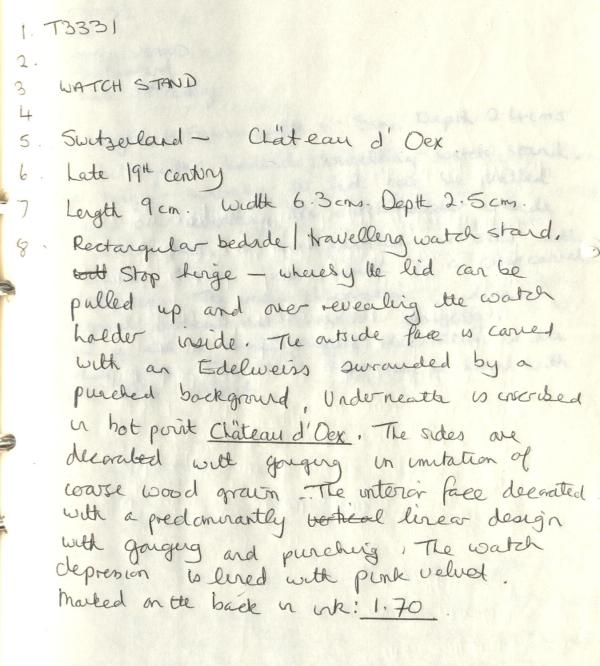 1. T3331
2.
3 WATCH STAND
4
5. Switzerland – Chäteau d' Oex
6. Late 19th century
7 Length 9 cm. Width 6.3cms. Depth 2.5cms.
8. Rectangular bedside / travelling watch stand.
with Stop hinge – whereby the lid can be
pulled up and over revealing the watch
holder inside. The outside face is carved
with an Edelweiss surrounded by a
punched background, Underneath is inscribed
in hot point Chäteau d'Oex. The sides are
decorated with gouging in imitation of
coarse wood grain. The interior face decorated
with a predominantly vertical linear design
with gouging and punching. The watch
depression is lined with pink velvet.
Marked on the back in ink: 1.70.